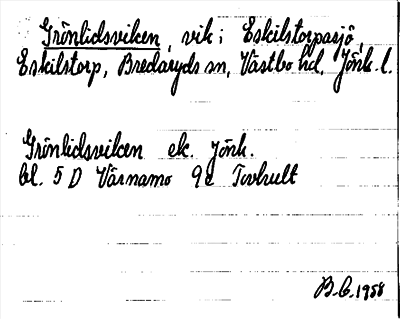 Grönlidsviken, vik i Eskilstorpasjö,
Eskilstorp, Bredaryds sn, Västbo hd, Jönk. l.
Grönlidsviken ek. Jönk.
bl. 5 D Värnamo 9e Torhult
B.G. 1958